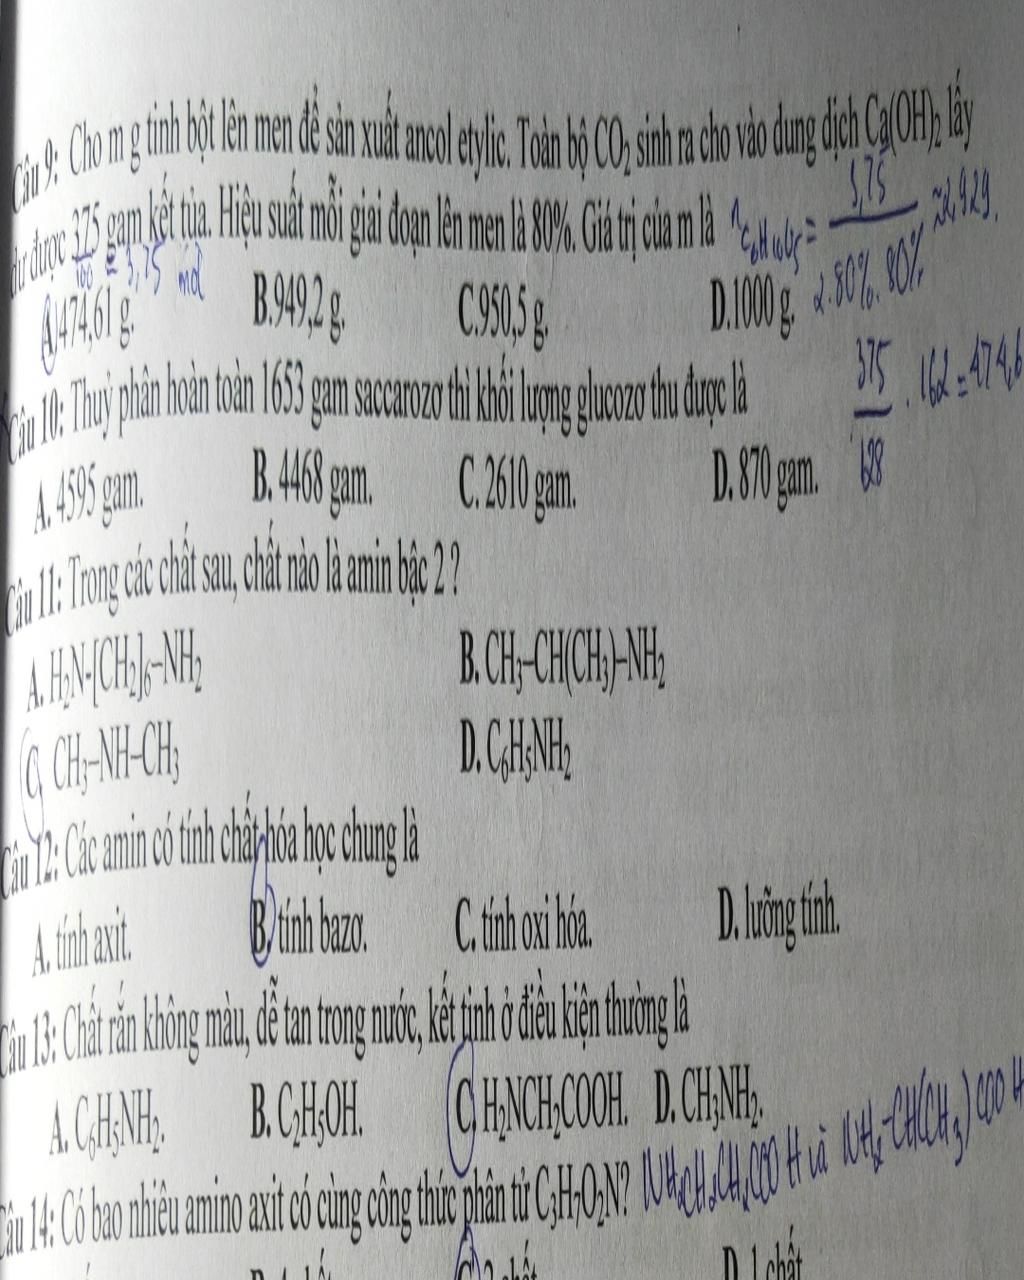 Câu 9: Cho m g tinh bột lên men để sản xuất ancol etylic. Toàn bộ CO₂ sinh ra cho vào dung dịch Ca(OH)₂ lấy
dư được 375 gam kết tủa. Hiệu suất mỗi giai đoạn lên men là 80%. Giá trị của m là
n C₆H₁₀O₅ = 3,75 / 2.80%.80% ≈ 2,929.
375/100 = 3,75 mol
A. 474,61 g. B. 949,2 g. C. 950,5 g. D. 1000 g.
375/128 . 162 = 474,6
Câu 10: Thuỷ phân hoàn toàn 1653 gam saccarozơ thì khối lượng glucozơ thu được là
A. 4595 gam. B. 4468 gam. C. 2610 gam. D. 870 gam.
Câu 11: Trong các chất sau, chất nào là amin bậc 2 ?
A. H₂N-[CH₂]₆–NH₂ B. CH₃–CH(CH₃)–NH₂
C. CH₃–NH–CH₃ D. C₆H₅NH₂
Câu 12: Các amin có tính chất hóa học chung là
A. tính axit. B. tính bazơ. C. tính oxi hóa. D. lưỡng tính.
Câu 13: Chất rắn không màu, dễ tan trong nước, kết tinh ở điều kiện thường là
A. C₆H₅NH₂. B. C₂H₅OH. C. H₂NCH₂COOH. D. CH₃NH₂.
Câu 14: Có bao nhiêu amino axit có cùng công thức phân tử C₃H₇O₂N? NH₂CH₂CH₂COOH và NH₂-CH(CH₃)COOH
C. 2 chất. D. 1 chất